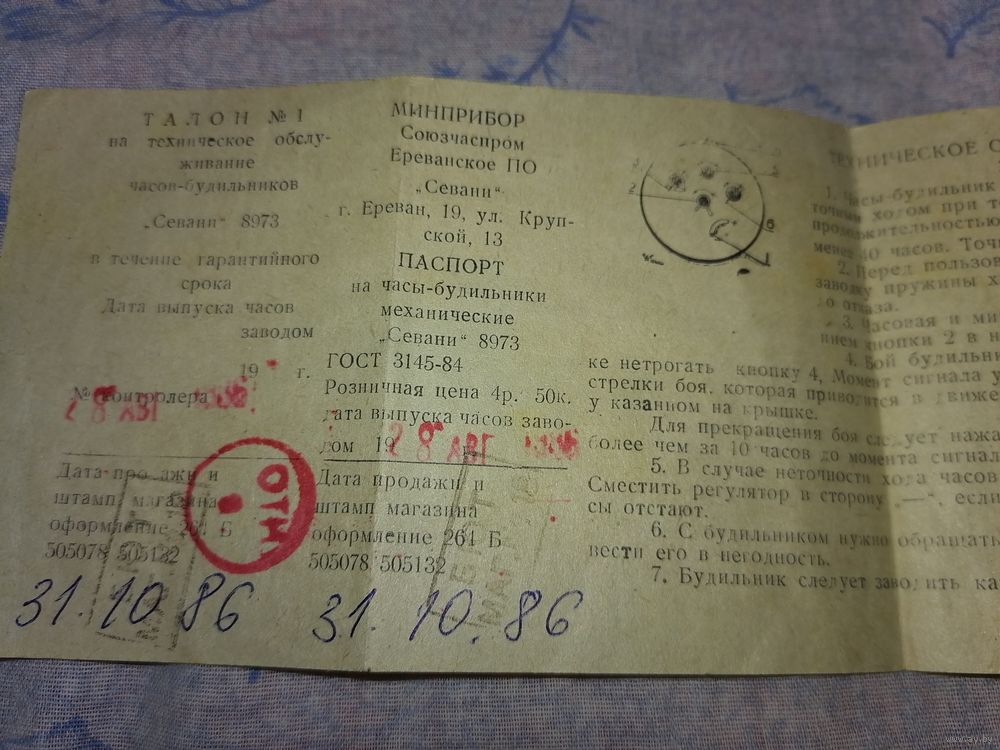 ТАЛОН № 1
на техническое обслу-
живание
часов-будильников
„Севани“ 8973
в течение гарантийного
срока
Дата выпуска часов
заводом
19 г.
№ контролера
28 АВГ 1986
ОТК
Дата продажи и
штамп магазина
оформление 261 Б
505078 505132
31.10.86
МИНПРИБОР
Союзчаспром
Ереванское ПО
„Севани“
г. Ереван, 19, ул. Круп-
ской, 13
ПАСПОРТ
на часы-будильники
механические
„Севани“ 8973
ГОСТ 3145-84
Розничная цена 4р. 50к.
дата выпуска часов заво-
дом 19
28 АВГ 1986
Дата продажи и
штамп магазина
оформление 261 Б
505078 505132
31.10.86
2
6
ке нетрогать кнопку 4, Момент сигнала у
стрелки боя, которая приводится в движе
у казанном на крышке.
Для прекращения боя следует нажа
более чем за 10 часов до момента сигнал
5. В случае неточности хода часов
Сместить регулятор в сторону „—“, если
сы отстают.
6. С будильником нужно обращать
вести его в негодность.
7. Будильник следует заводить ка
ТЕХНИЧЕСКОЕ О
1. Часы-будильник
точным ходом при т
продолжительностью
менее 40 часов. Точн
2. Перед пользов
заводку пружины х
до отказа.
3. Часовая и ми
нием кнопки 2 в н
4. Бой будильн
www.ay.by